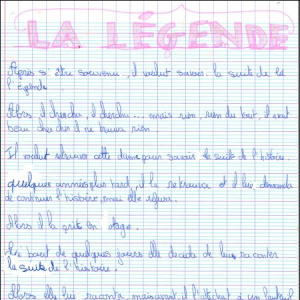 LA LÉGENDE
Après s'être souvenu, il voulut savoir la suite de la
légende
Alors il chercha, il chercha... mais rien, rien du tout, il eut
beau chercher il ne trouva rien
Il voulut retrouver cette dame pour savoir la suite de l'histoire.
quelques années plus tard, il la retrouva et il lui demanda
de continuer l'histoire, mai elle refusa.
Alors il la prit en otage.
Au bout de quelques jours elle décida de leur raconter
la suite de l'histoire.
Alors elle lui raconta, maintenant il l'attacha à un